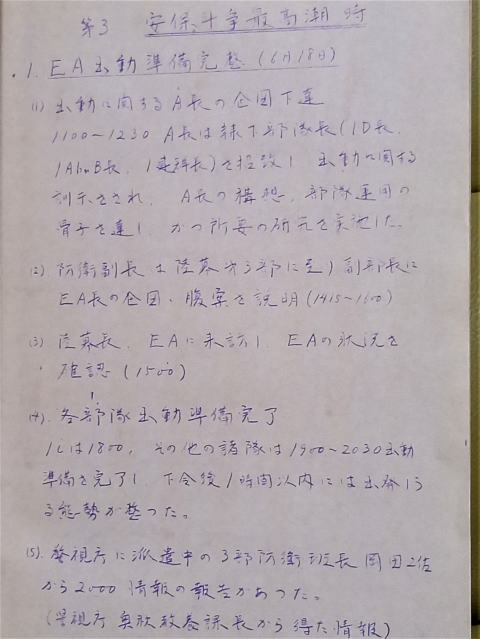 第3 安保斗争最高潮時
1. EA出動準備完整 (6月18日)
(1) 出動に関するA長の企図下達
1100〜1230 A長は隷下部隊長(1D長、
1AbnB長、1建群長)を招致し 出動に関する
訓示をされ、A長の構想、部隊運用の
骨子を達し、かつ所要の研究を実施した。
(2) 防衛副長は陸幕第3部に至り副部長に
EA長の企図・腹案を説明(1415〜1600)
(3) 陸幕長、EAに来訪し、EAの状況を
確認(1500)
(4) 各部隊出動準備完了
は1800、その他の諸隊は1900〜2030出動
準備を完了し、下令後1時間以内には出発しう
る態勢が整つた。
(5) 警視庁に派遣中の3部防衛班長 岡田2佐
から2000情報の報告があつた。
(警視庁 課長から得た情報)